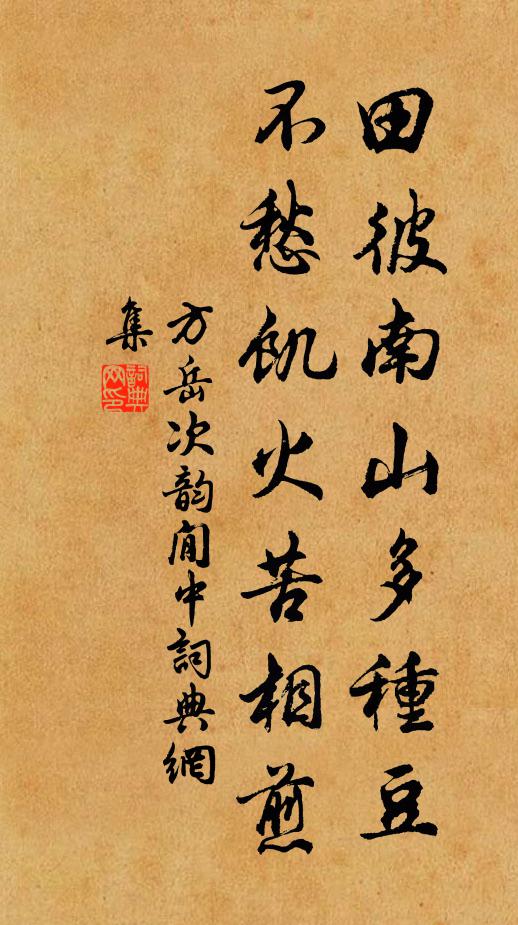 田彼南山多種豆
不愁飢火苦相煎
方岳次韵閒中詞典網
集
詞典
网印